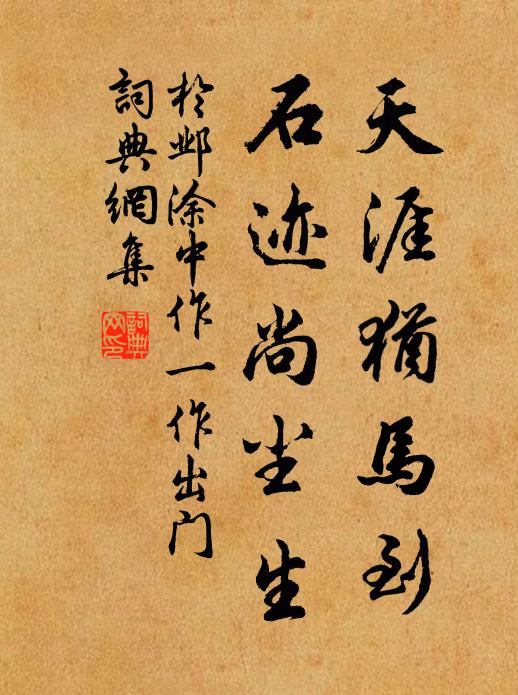 天涯猶馬到
石迹尚尘生
於邺涂中作一作出门
詞典網集
詞典网印